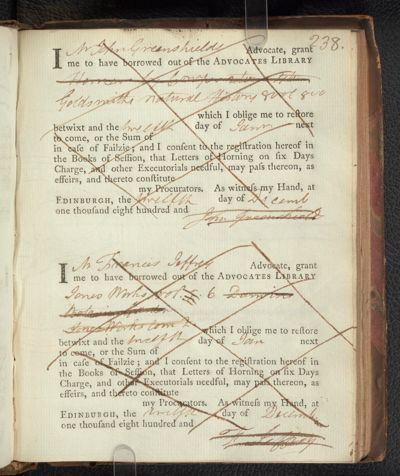 238.
I Mr John Greenshields Advocate, grant
me to have borrowed out of the ADVOCATES LIBRARY
Goldsmiths natural History 8 vol 8vo
which I oblige me to reſtore
betwixt and the twelfth day of Janry next
to come, or the Sum of
in caſe of Failzie; and I conſent to the regiſtration hereof in
the Books of Seſſion, that Letters of Horning on ſix Days
Charge, and other Executorials needful, may paſs thereon, as
effeirs, and thereto conſtitute
my Procurators. As witneſs my Hand, at
EDINBURGH, the twelfth day of Decemb
one thouſand eight hundred and
John Greenshields
I Mr Frances Jeffrey Advocate, grant
me to have borrowed out of the ADVOCATES LIBRARY
Jones Works vol 6
Jones Works
which I oblige me to reſtore
betwixt and the twelfth day of Jan next
to come, or the Sum of
in caſe of Failzie; and I conſent to the regiſtration hereof in
the Books of Seſſion, that Letters of Horning on ſix Days
Charge, and other Executorials needful, may paſs thereon, as
effeirs, and thereto conſtitute
my Procurators. As witneſs my Hand, at
EDINBURGH, the twelfth day of Decemb
one thouſand eight hundred and
F. Jeffrey